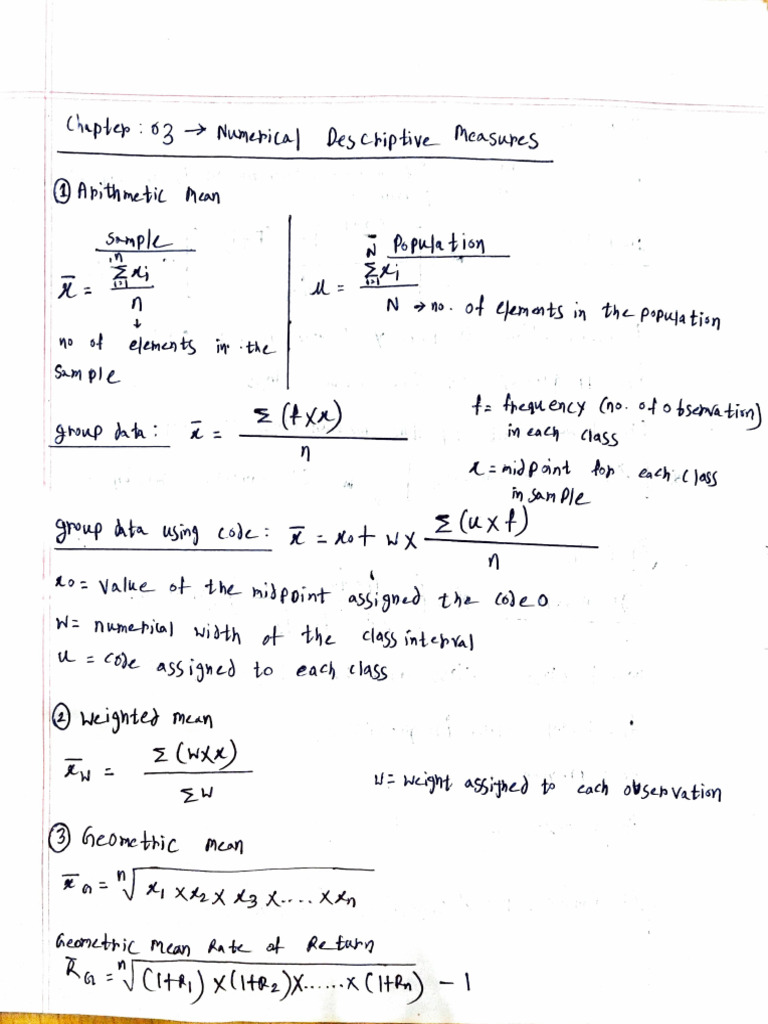 Chapter : 03 → Numerical Descriptive Measures
① Arithmetic Mean
Sample
x̄ = Σᵢ₌₁ⁿ xᵢ / n
↓
no of elements in the
Sample
Population
μ = Σᵢ₌₁ᴺ xᵢ / N → no. of elements in the population
group data : x̄ = Σ (f × x) / n
f = frequency (no. of observation)
in each class
x = midpoint for each class
in sample
group data using code : x̄ = x₀ + w × Σ (u × f) / n
x₀ = value of the midpoint assigned the code 0
w = numerical width of the class interval
u = code assigned to each class
② Weighted mean
x̄w = Σ (w × x) / Σ w
w = weight assigned to each observation
③ Geometric mean
x̄G = ⁿ√(x₁ × x₂ × x₃ × .... × xn)
Geometric Mean Rate of Return
R̄G = ⁿ√((1+R₁) × (1+R₂) × ...... × (1+Rn)) - 1